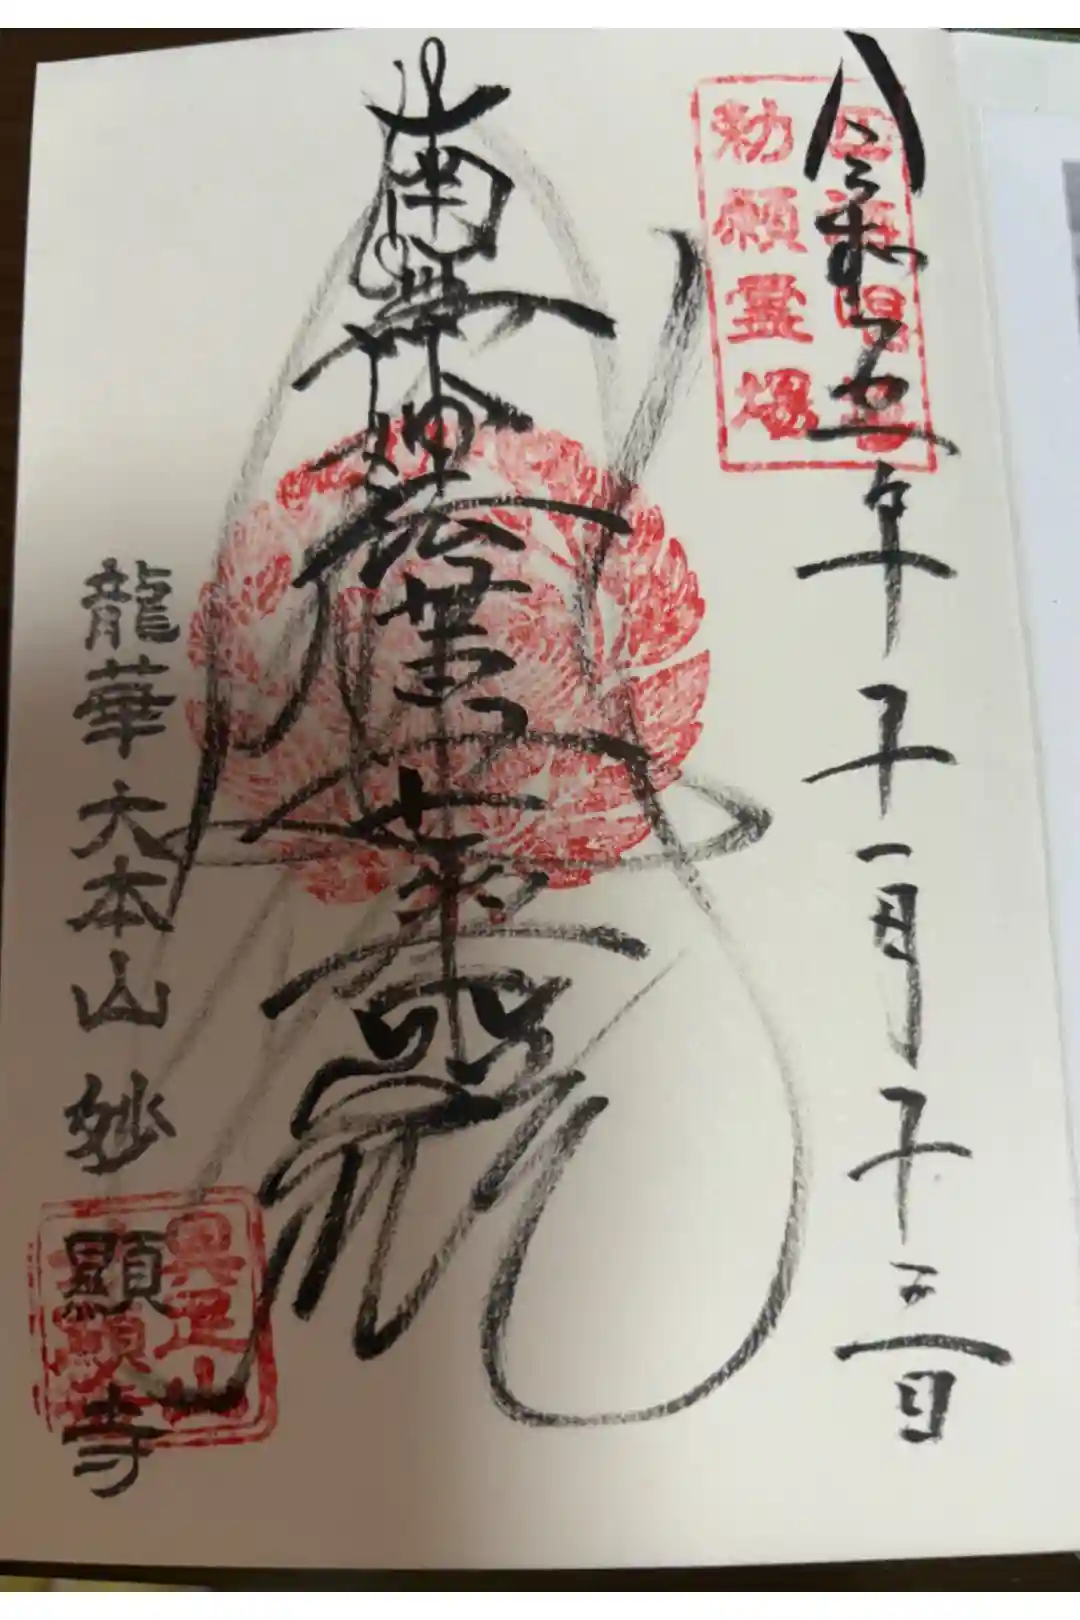 令和五年十一月十三日
四海唱導
勅願霊場
南無妙法蓮華經
龍華大本山 妙顯寺
具足山